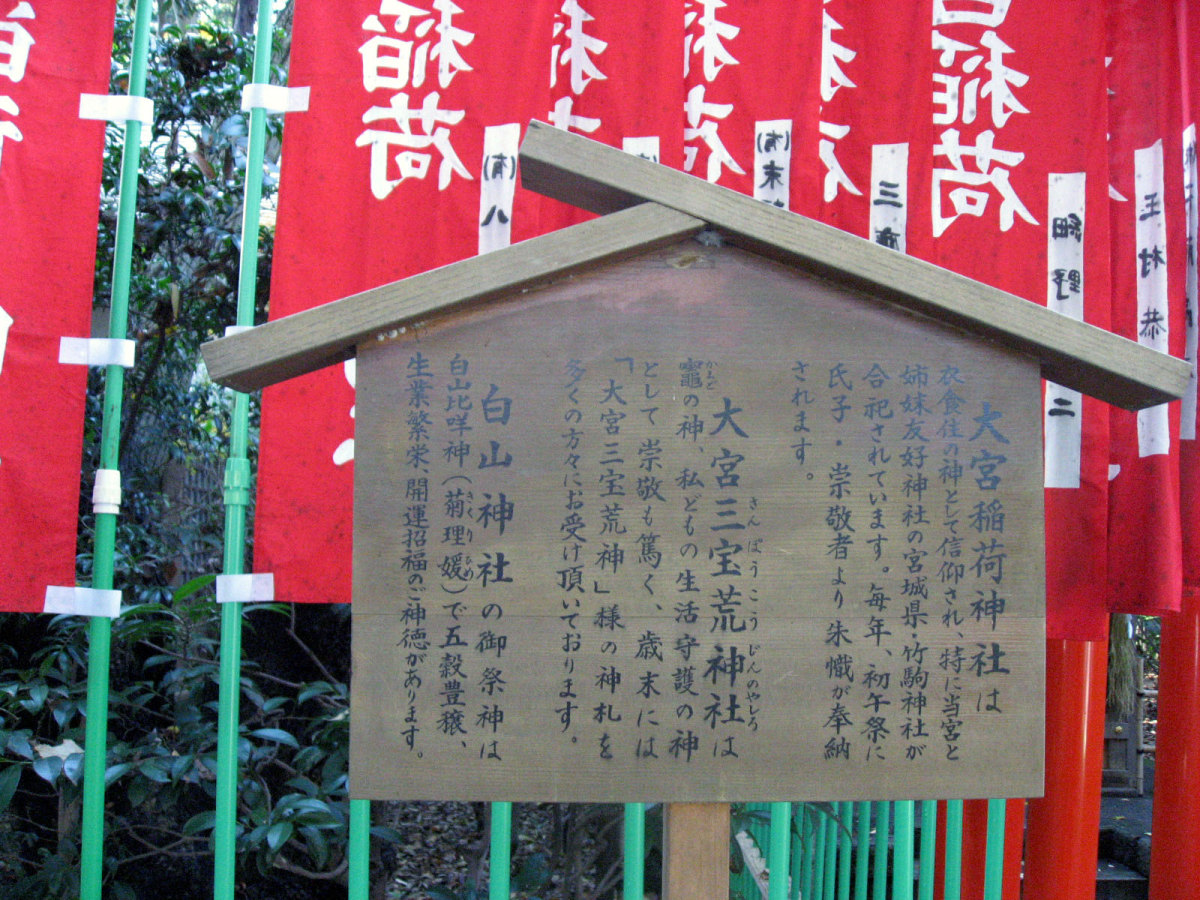 大宮稲荷神社は
衣食住の神として信仰され、特に当宮と
姉妹友好神社の宮城県・竹駒神社が
合祀されています。毎年、初午祭に
氏子・崇敬者より朱幟が奉納
されます。
大宮三宝荒神社は
さんぽうこうじんのやしろ
竈の神、私どもの生活守護の神
かまど
として崇敬も篤く、歳末には
「大宮三宝荒神」様の神札を
多くの方々にお受け頂いております。
白山神社の御祭神は
白山比咩神(菊理媛)で五穀豊穣、
きくりひめ
生業繁栄、開運招福のご神徳があります。
稲荷
稲荷
稲荷
(有)八
(有)末
三
細野
二
玉村恭